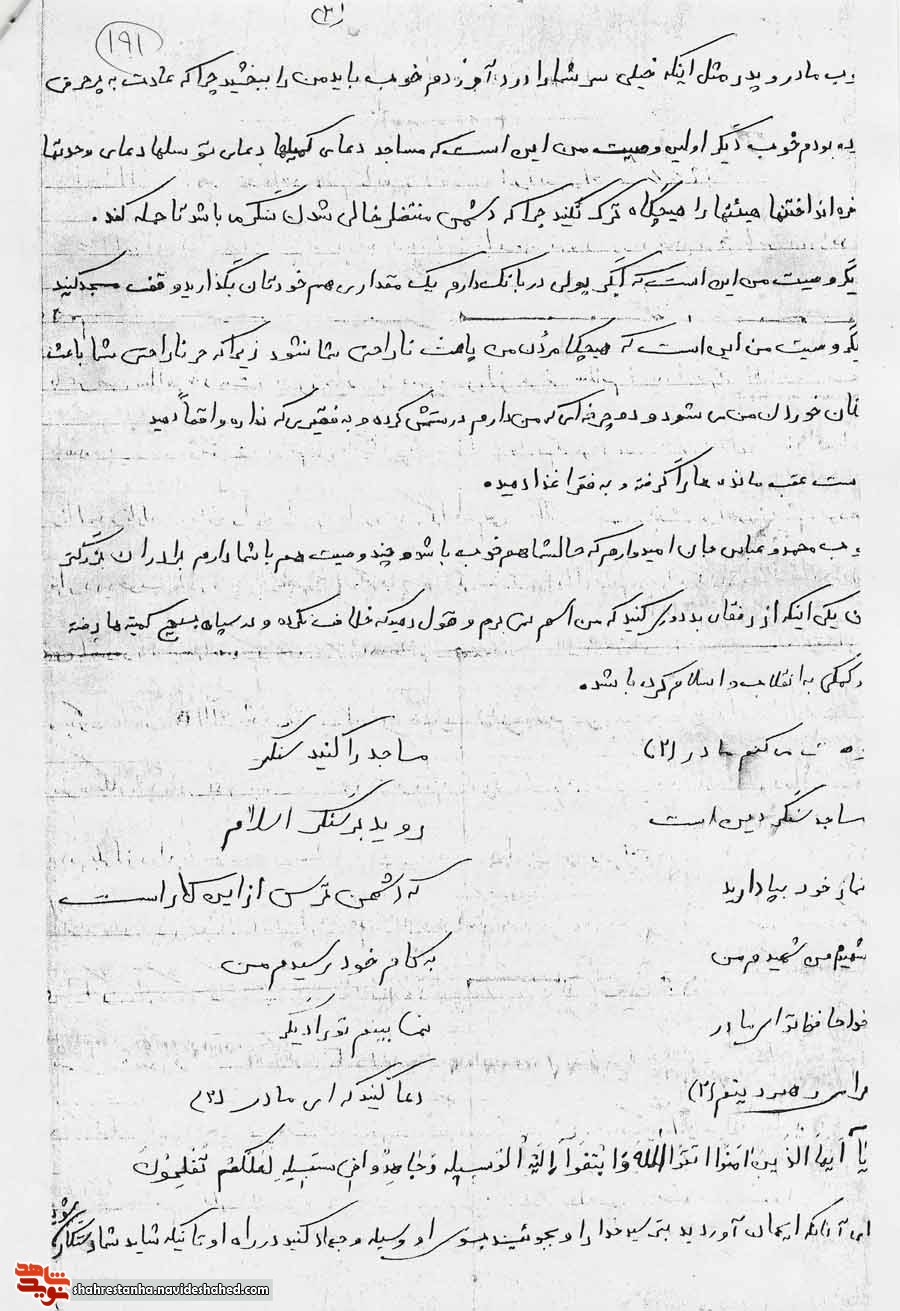 ۱۹۱
(۳)
وب مادر و پدر مثل اینکه خیلی سر شما را درد آوردم خوب باید من را ببخشید چرا که عادت به پرحرفی
ده بودم خوب دیگر اولین وصیت من این است که مساجد دعای کمیلها دعای توسلها دعای وحدتها
انداختنها هیئتها را هیچگاه ترک نکنید چرا که دشمن منتظر خالی شدن سنگر می باشد تا حمله کند.
یگر وصیت من این است که اگر پولی در بانک دارم یک مقداری هم خودتان بگذارید و قف مسجد کنید
یگر وصیت من این است که هیچگاه مردن من باعث ناراحتی شما نشود زیرا که هر ناراحتی شما باعث
خوردن من می شود و دوچرخه ای که من دارم درستش کرده و به فقیری که نداره واقعاً دهید
ست عقب مانده ها را گرفته و به فقرا غذا دهید.
وب محمد و عباس جان امیدوارم که حالشما هم خوب باشد و چند وصیت هم با شما دارم برادران بزرگتر
ن یکی اینکه از رفقان بد دوری کنید که من اسم نمی برم و قول دهید که خلاف نکرده و در سپاه بسیج کمیته ها رفته
کمکی به انقلاب و اسلام کرده باشد.
ت می کنم مادر (۲) مساجد را کنید سنگر
ساجد سنگر دین است روید بر سنگر اسلام
نماز خود بپا دارید که دشمن ترس از این کار است
شهیدم من شهیدم من به کام خود رسیدم من
خداحافظ تو ای مادر نما بینم تو را دیگر
برای رهبر دینم (۲) دعا کنید که ای مادر (۲)
یَا أَیُّهَا الَّذِینَ آمَنُوا اتَّقُوا اللهَ وَابْتَغُوا إِلَیْهِ الْوَسِیلَه وَجَاهِدُوا فِی سَبِیلِهِ لَعَلَّکُمْ تُفْلِحُونَ
ای آنانکه ایمان آوردید بترسید خدا را و بجوئید بسوی او وسیله و جهاد کنید در راه او تانیکه شاید شما رستگار شوید
نوید شاهد
shahrestanha.navideshahed.com